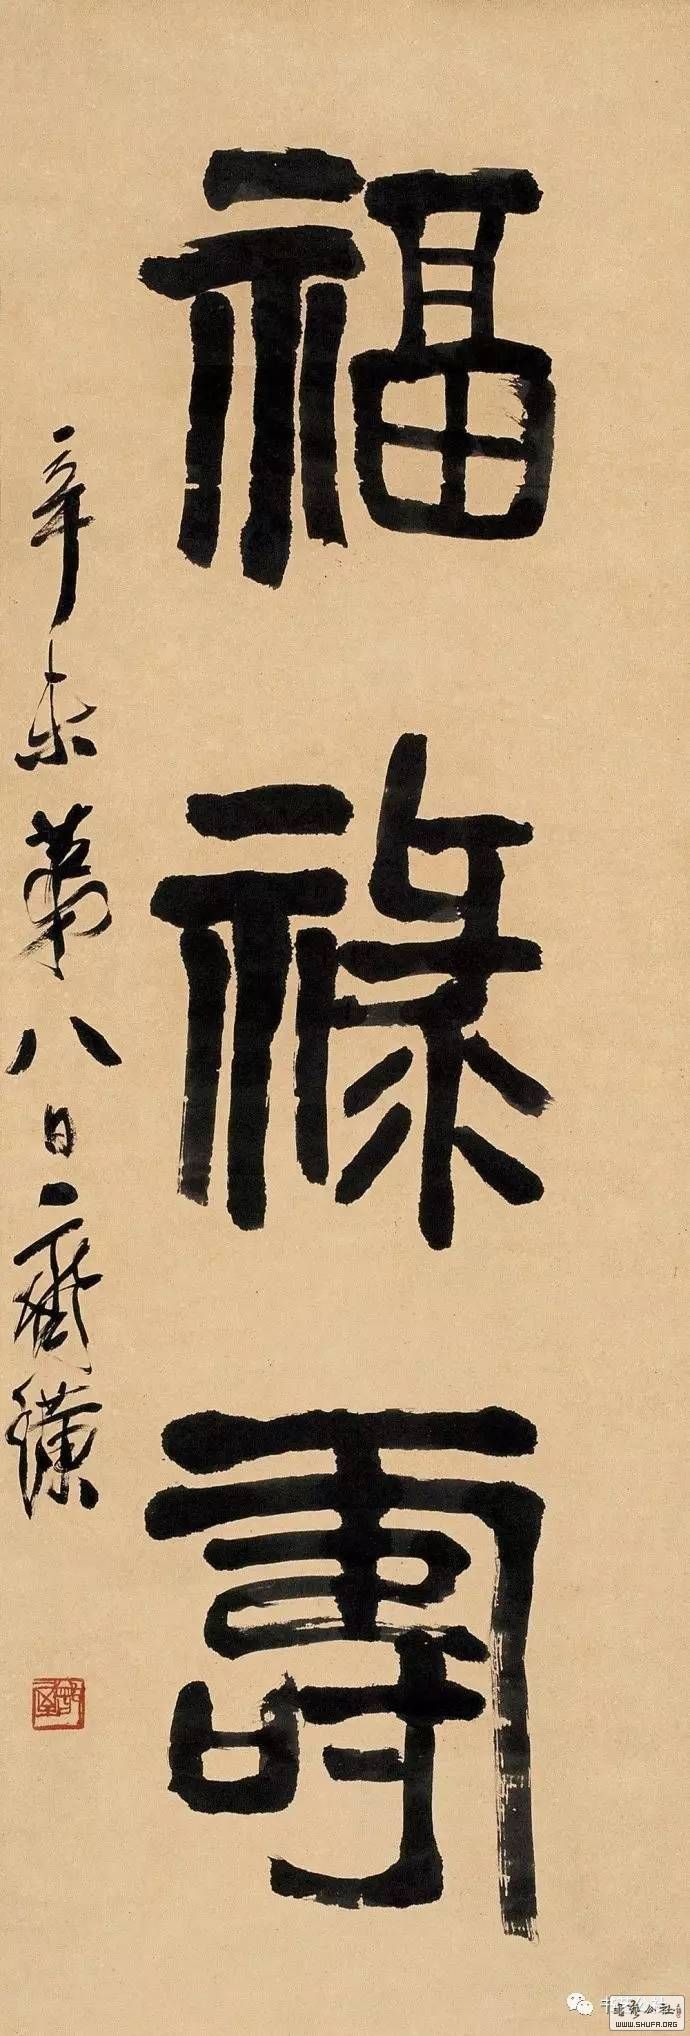 福祿壽
辛未第八日齊璜
書法公社
WWW.SHUFA.ORG